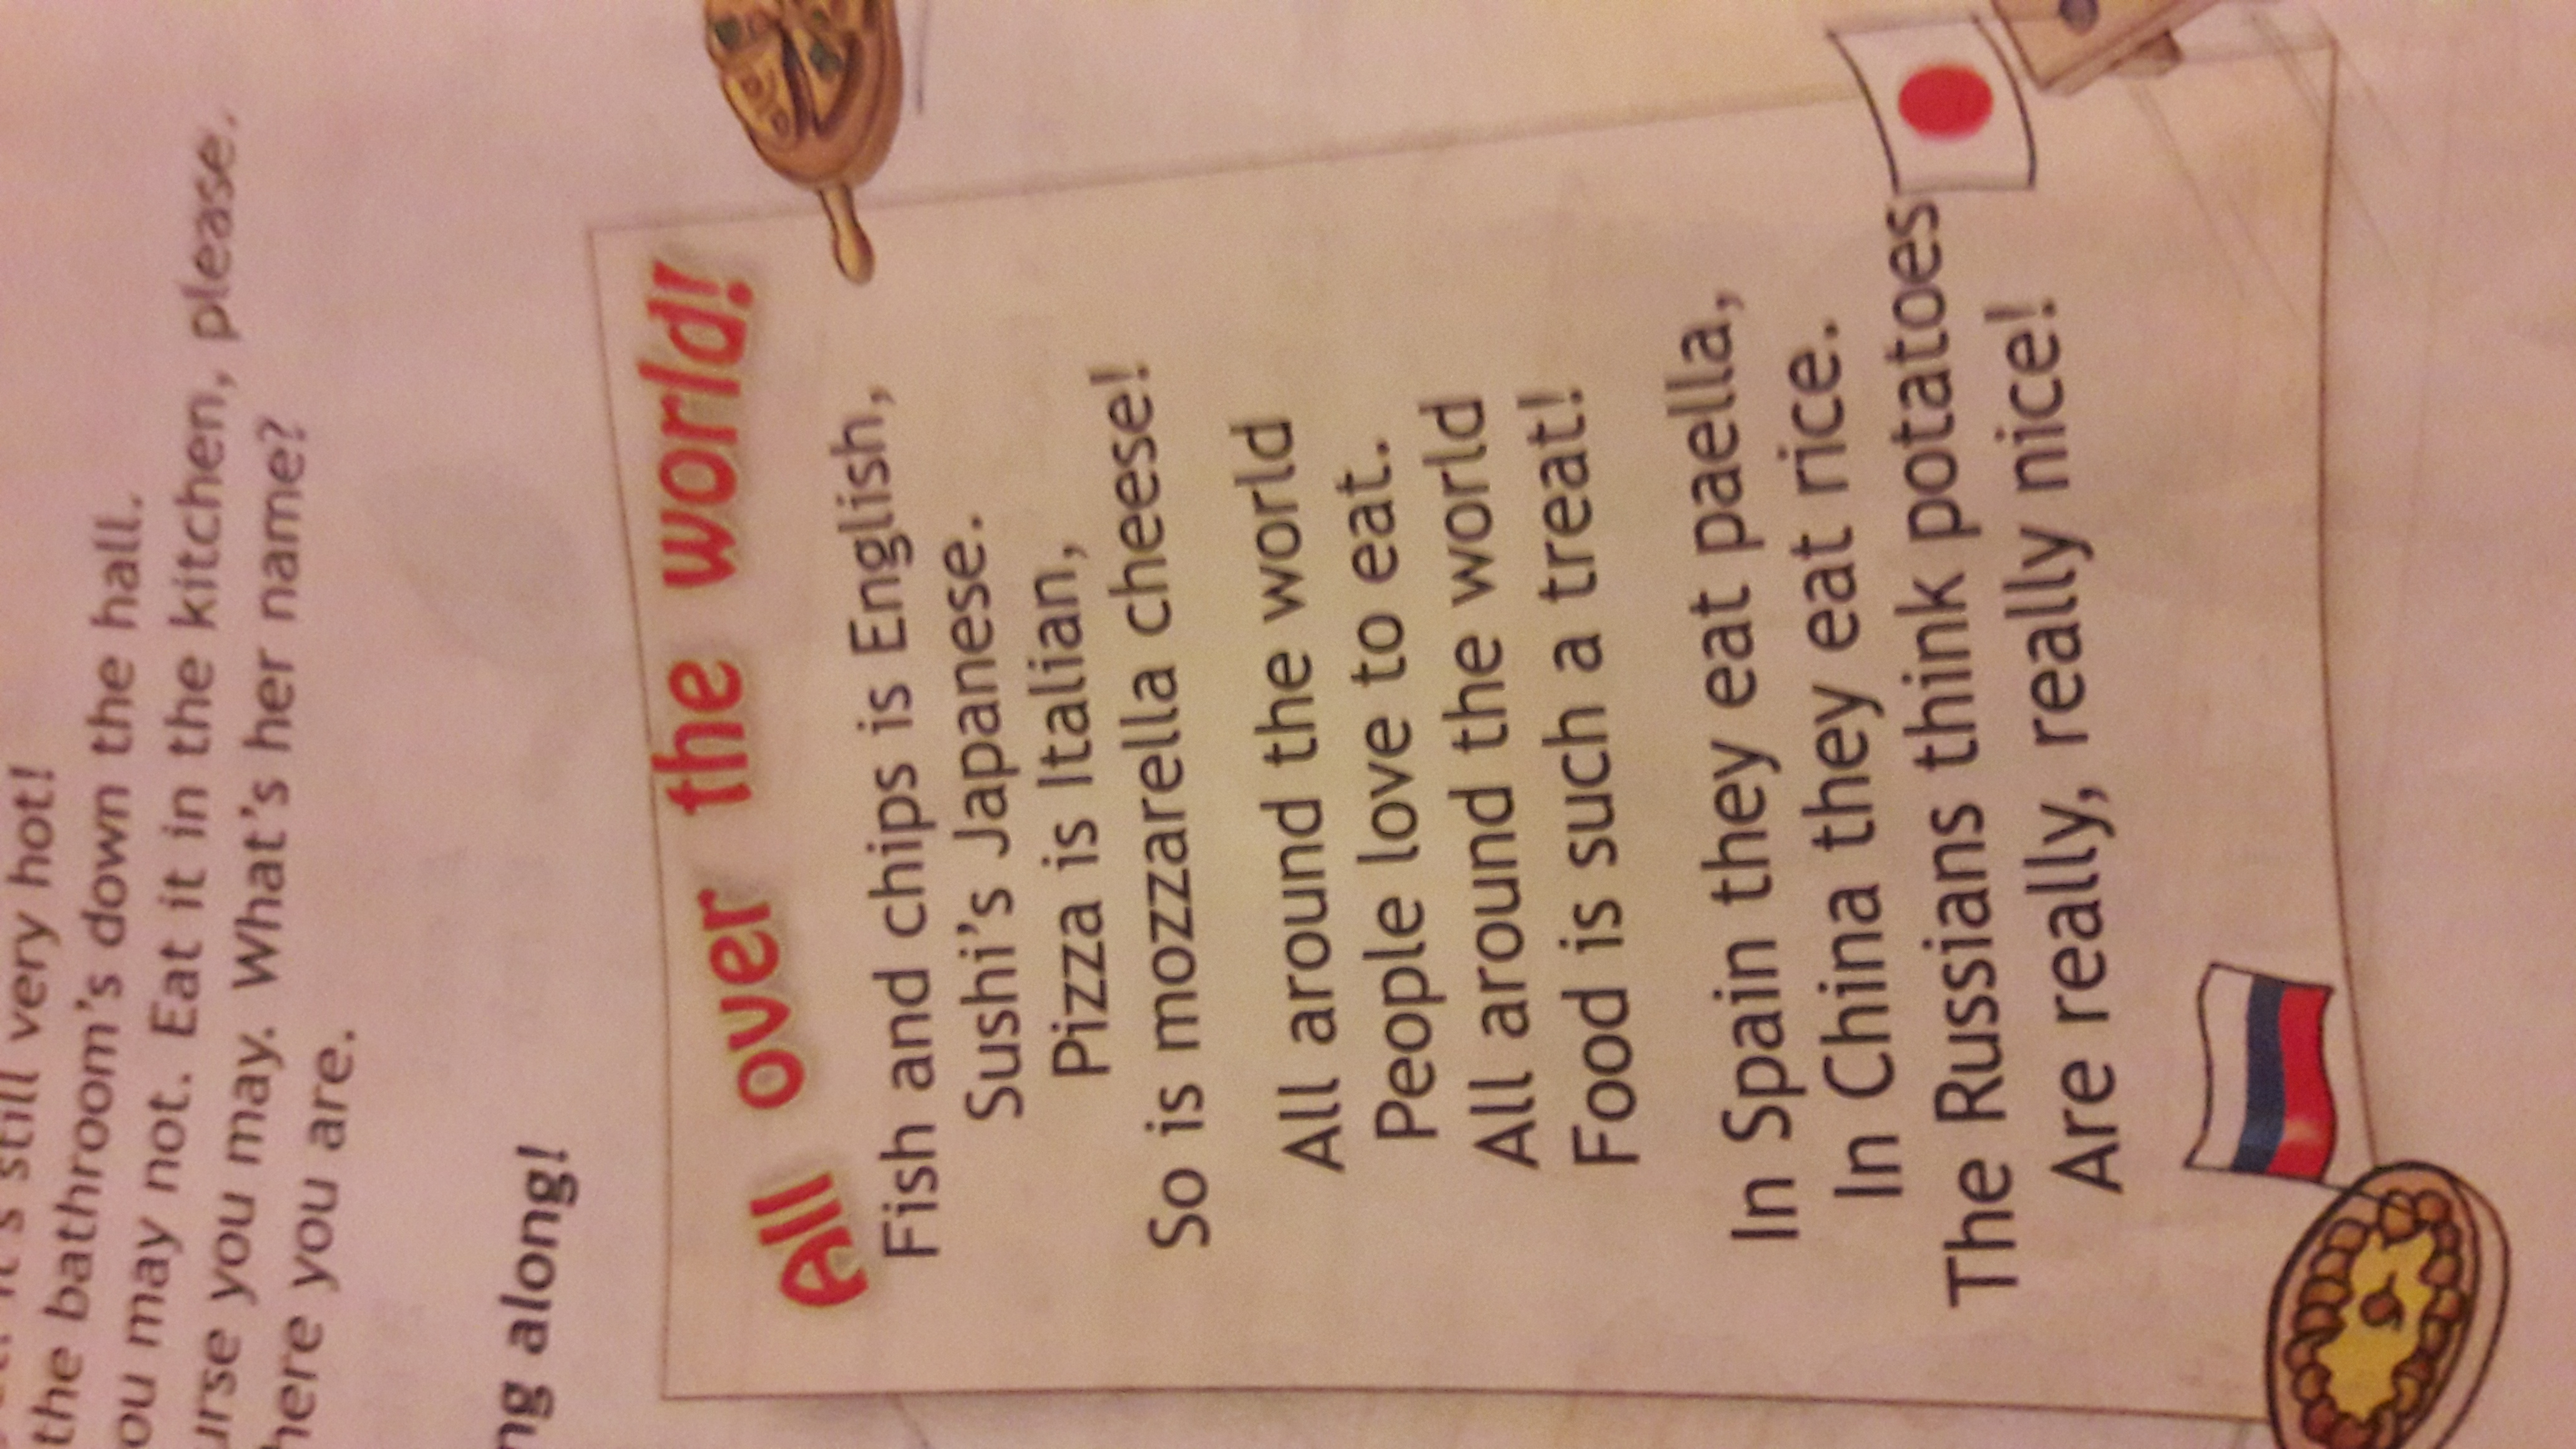 still very hot!
the bathroom's down the hall.
may not. Eat it in the kitchen, please.
you may. What's her name?
you are.
along!
All over the world!
Fish and chips is English,
Sushi's Japanese.
Pizza is Italian,
So is mozzarella cheese!
All around the world
People love to eat.
All around the world
Food is such a treat!
In Spain they eat paella,
In China they eat rice.
The Russians think potatoes
Are really, really nice!